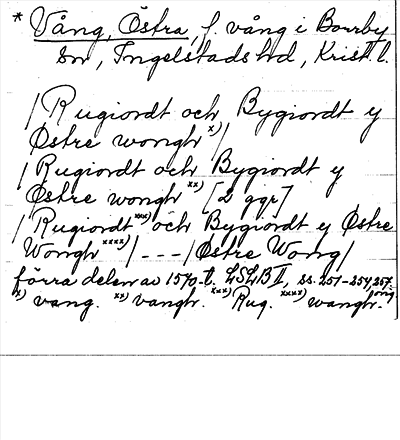 * Vång, Östra, f. vång i Borrby
sn, Ingelstads hd, Krist. l.
/Rugiordt och Bygiordt y
Østre wongh x)/
/Rugiordt och Bygiordt y
Østre wongh xx) [2 ggr]
/Rugiordt xxx) och Bygiordt y Østre
Wongh xxxx)/ - - - /Østre Wong/
förra delen av 1570-t. LSLB II, ss. 251-254, 257.
x) vang. xx) vangh. xxx) Rug. xxxx) wangh.